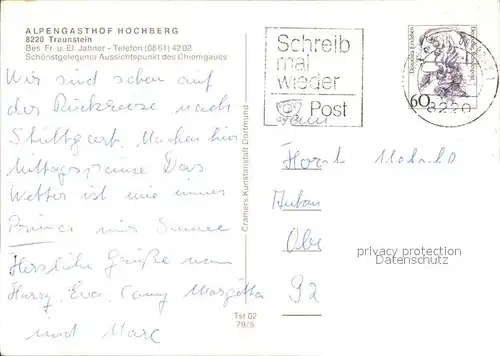 ALPENGASTHOF HOCHBERG
8220 Traunstein
Bes. Fr. u. El. Jahner - Telefon (08 61) 42 02
Schönstgelegener Aussichtspunkt des Chiemgaues
Wir sind schon auf
der Rückreise nach
Stuttgart. Machen hier
Mittagspause Das
Wetter ist wie immer
Prima
Herzliche Grüße von
Harry, Eva, Conny Margitta
und Marc
Cramers Kunstanstalt Dortmund
Tst 02
79/5
Schreib
mal
wieder
Post
60
8220
privacy protection
Datenschutz
92